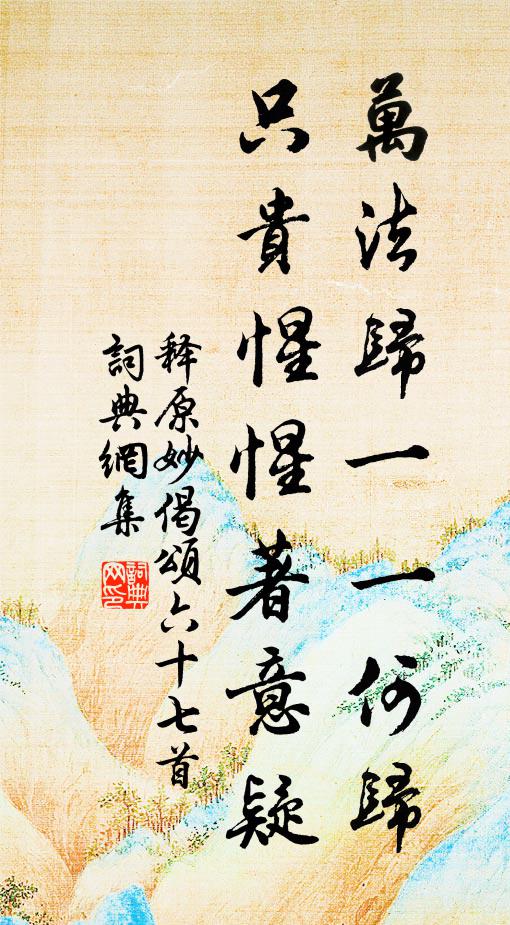 萬法歸一一何歸
只貴惺惺著意疑
释原妙偈頌六十七首
詞典網集
詞典网印